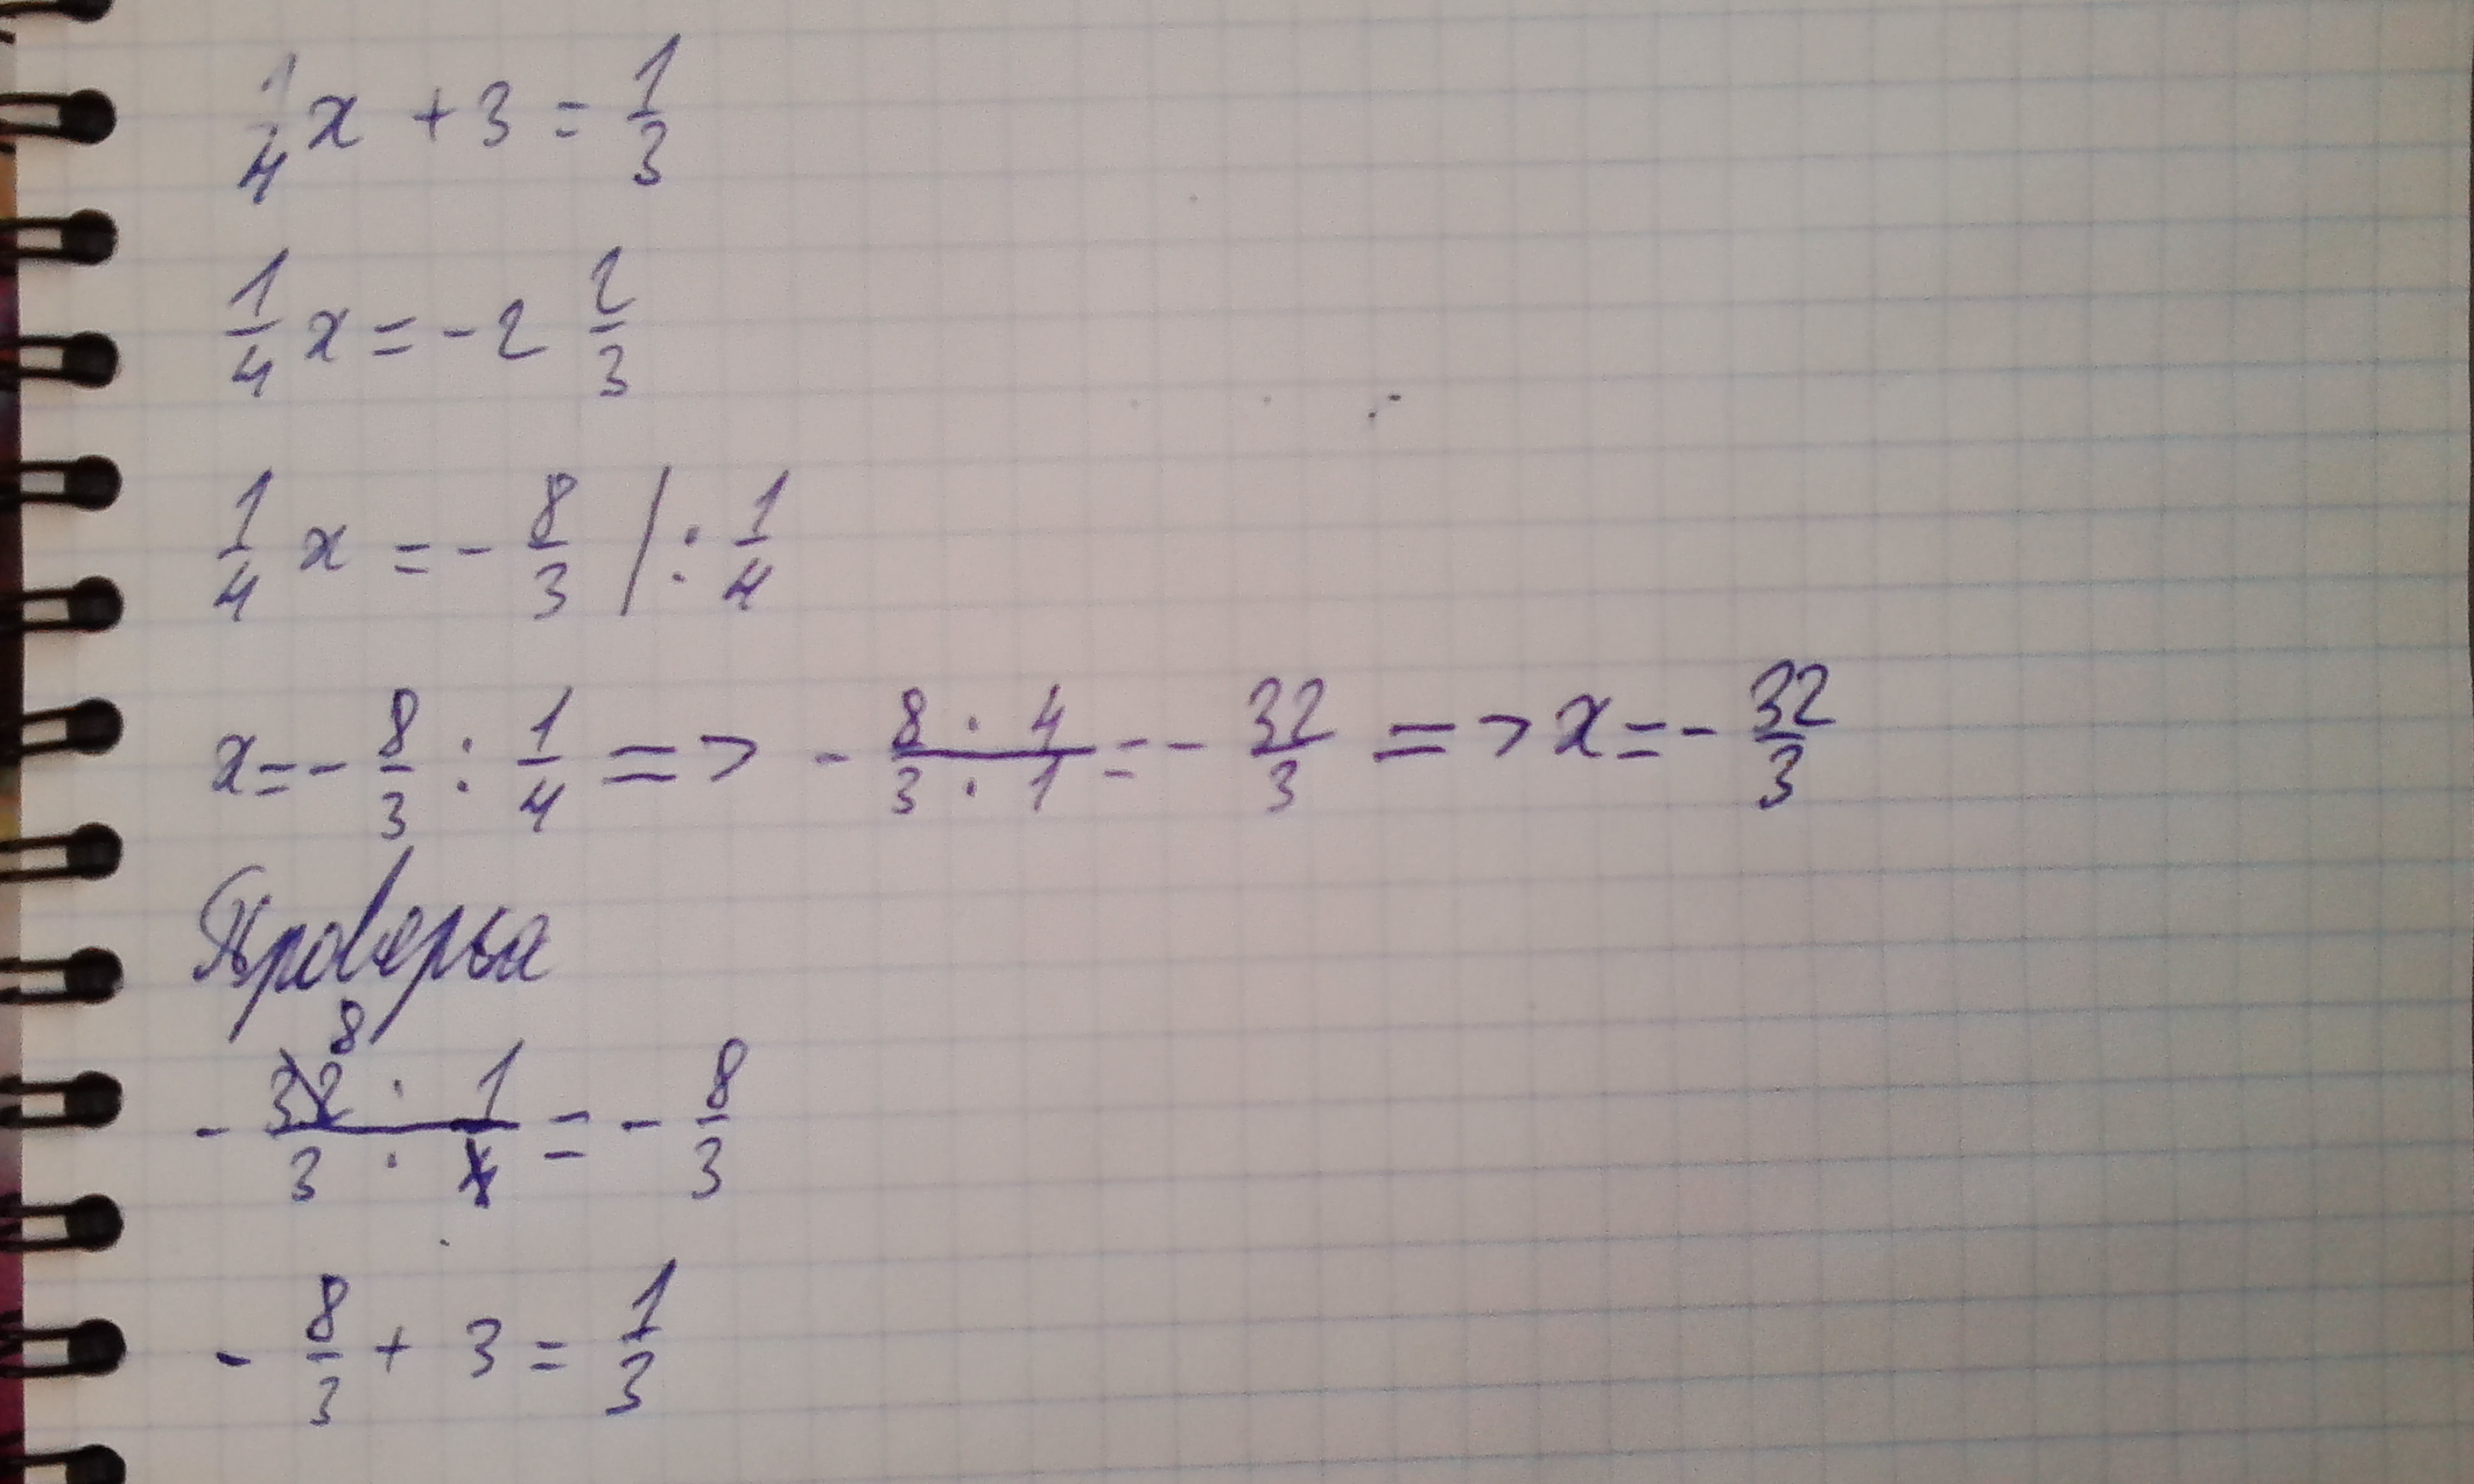 1/4 x + 3 = 1/3
1/4 x = - 2 2/3
1/4 x = - 8/3 / : 1/4
x = - 8/3 : 1/4 => - 8 · 4 / 3 · 1 = - 32/3 => x = - 32/3
Проверка
8
- 32 · 1 / 3 · 4 = - 8/3
- 8/3 + 3 = 1/3